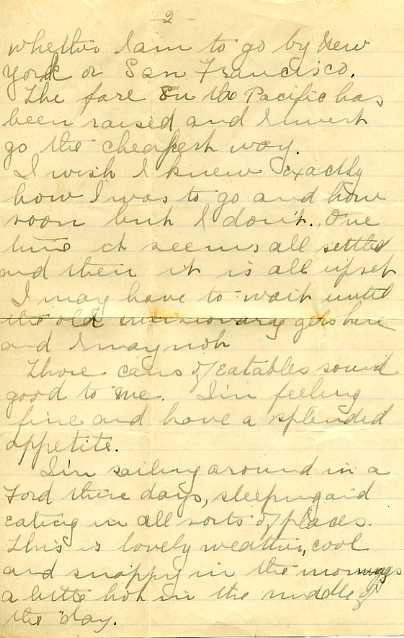 -2-
whether I am to go by New
York or San Francisco.
The fare on the Pacific has
been raised and I must
go the cheapest way.
I wish I knew exactly
how I was to go and how
soon but I don't. One
time it seems all settled
and then it is all upset
I may have to wait until
the old missionary gets here
and I may not.
Those cans of eatables sound
good to me. I'm feeling
fine and have a splendid
appetite.
I'm sailing around in a
Ford these days, sleeping and
eating in all sorts of places.
This is lovely weather, cool
and snappy in the mornings
a little hot in the middle of
the day.